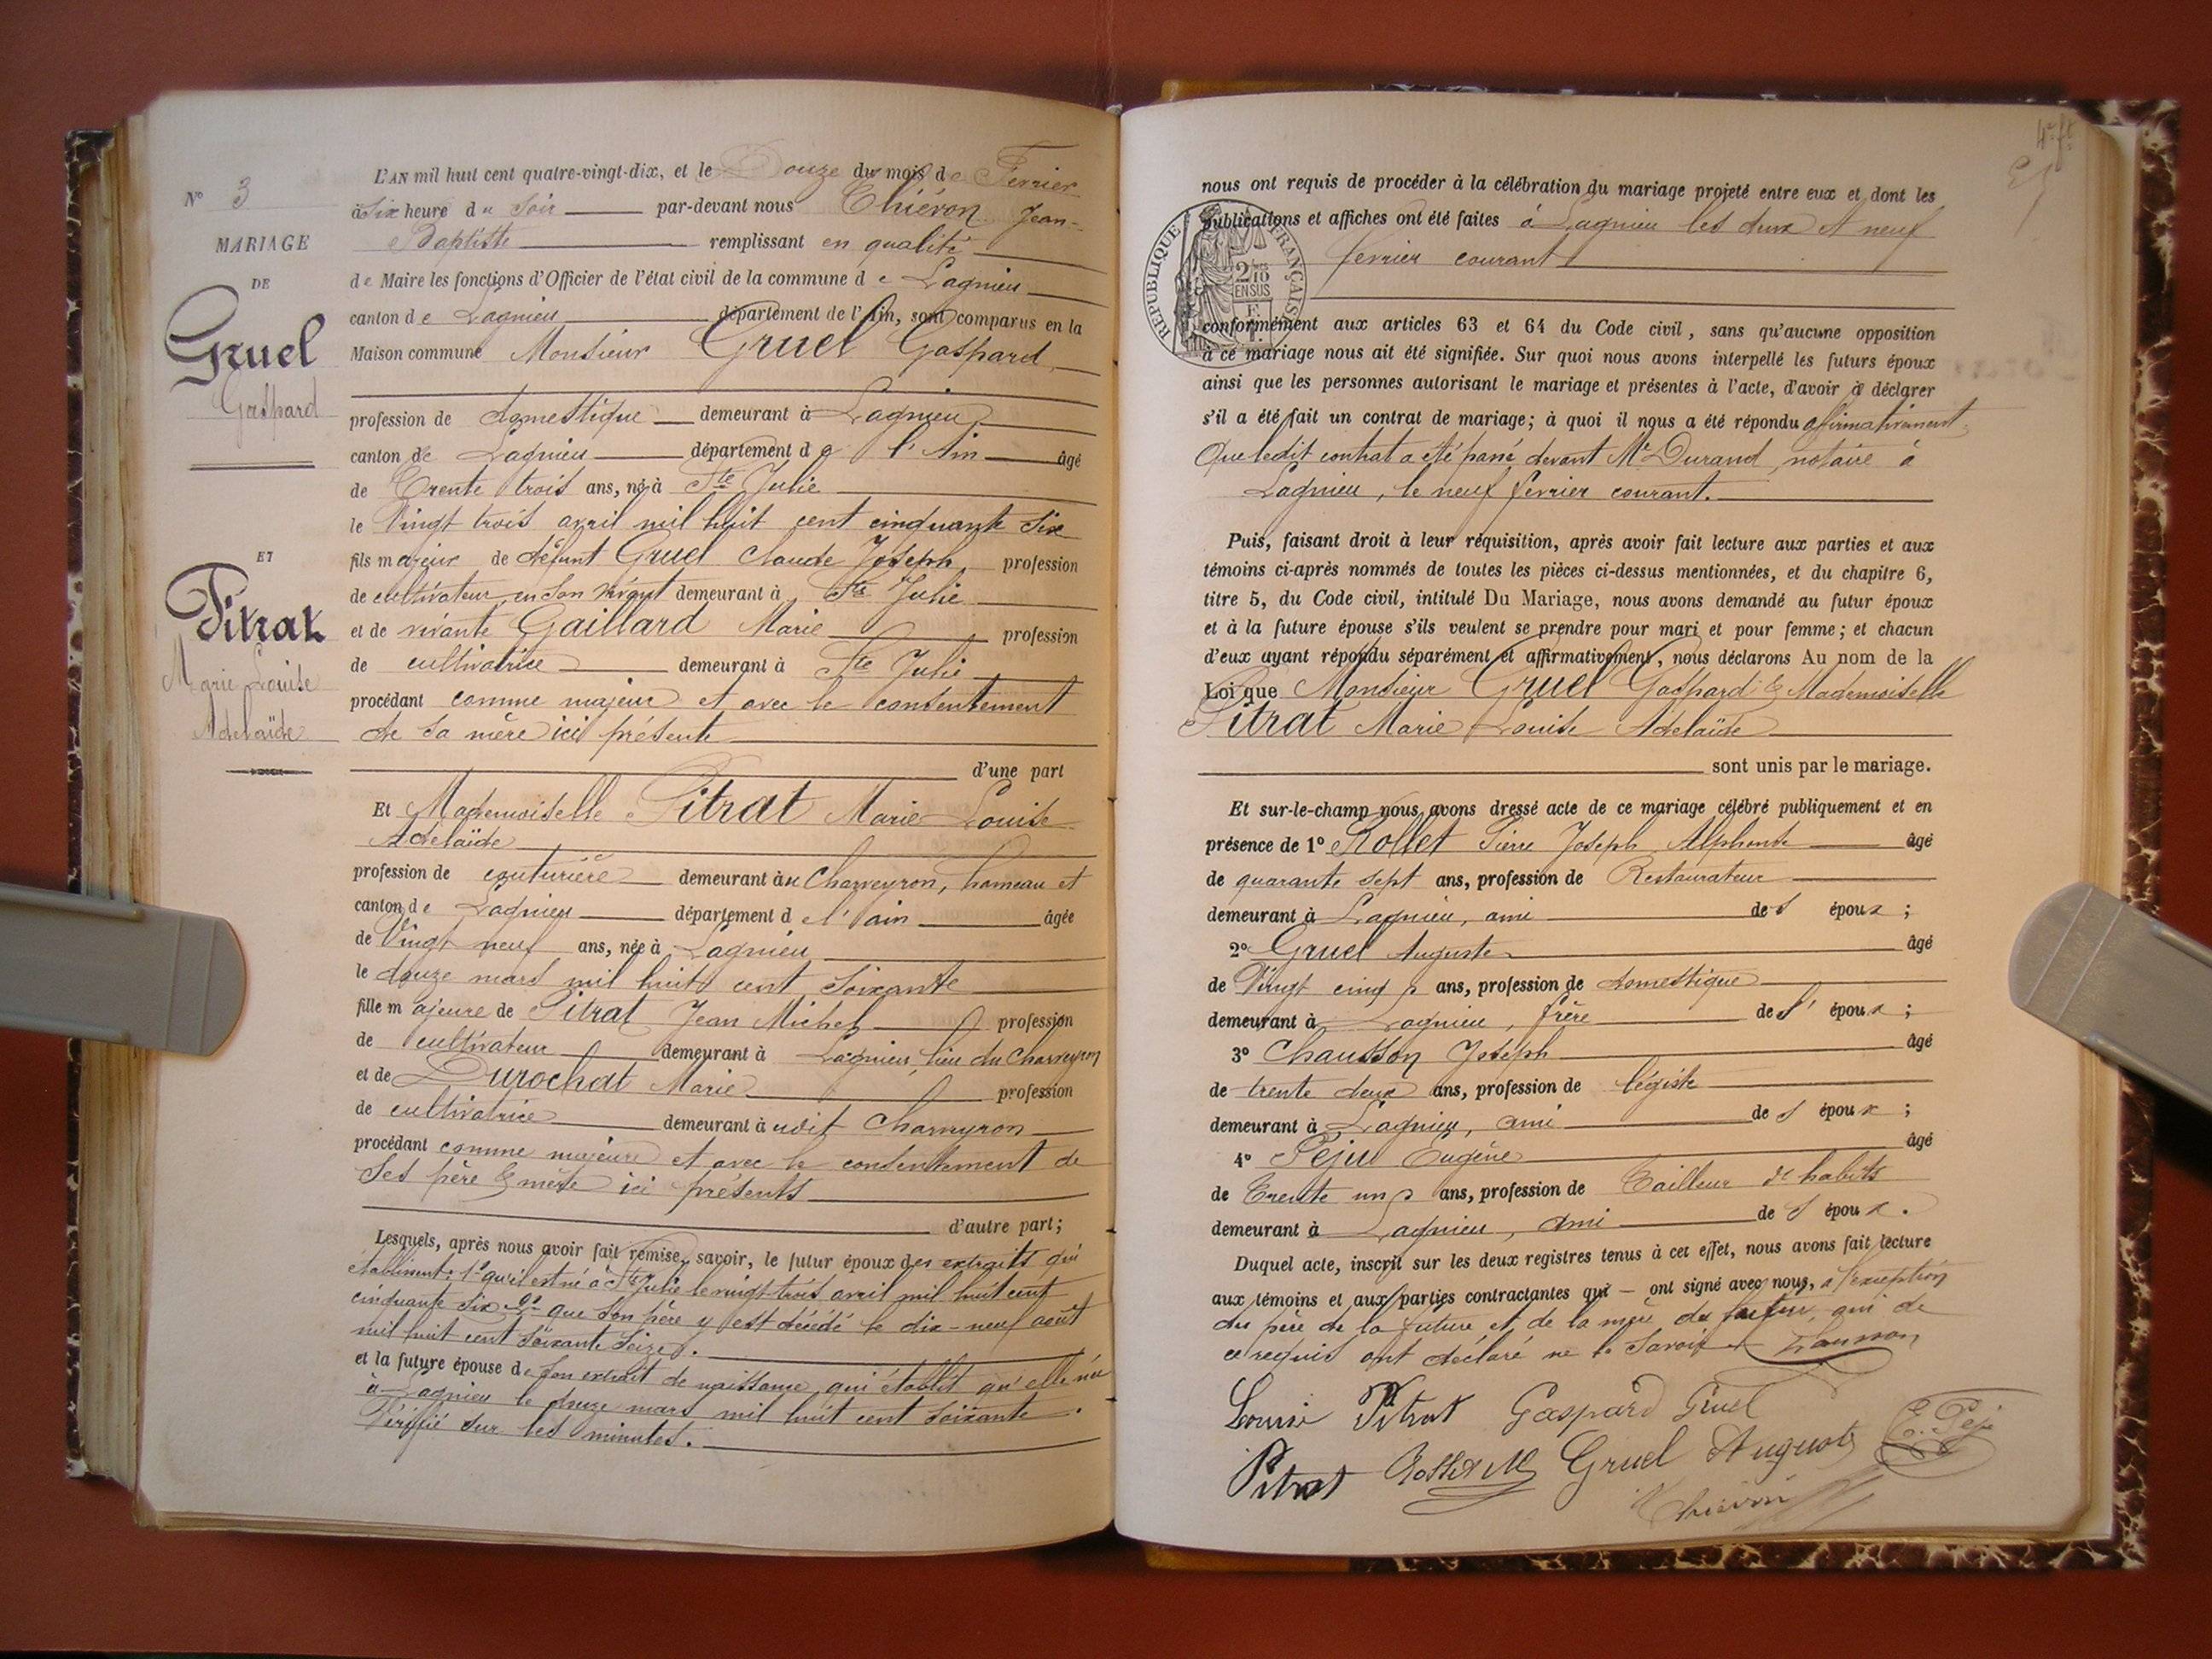 N° 3
MARIAGE
DE
Gruel
Gaspard
ET
Pitrat
Marie Louise
Adelaïde
L'AN mil huit cent quatre-vingt-dix, et le Douze du mois de Fevrier
à six heure du Soir par-devant nous Chiéron Jean-
Baptiste remplissant en qualité
de Maire les fonctions d'Officier de l'état civil de la commune de Lagnieu
canton de Lagnieu département de l'Ain, sont comparus en la
Maison commune Monsieur Gruel Gaspard
profession de domestique demeurant à Lagnieu
canton de Lagnieu département de l'Ain âgé
de Trente trois ans, né à Ste Julie
le Vingt trois avril mil huit cent cinquante six
fils majeur de défunt Gruel Claude Joseph, profession
de cultivateur en son vivant demeurant à Ste Julie
et de vivante Gaillard Marie profession
de cultivatrice demeurant à Ste Julie
procédant comme majeur et avec le consentement
de sa mère ici présente
d'une part
Et Mademoiselle Pitrat Marie Louise
Adelaïde
profession de couturière demeurant au Charveyron, hameau et
canton de Lagnieu département de l'ain âgée
de Vingt neuf ans, née à Lagnieu
le douze mars mil huit cent soixante
fille majeure de Pitrat Jean Michel profession
de cultivateur demeurant à Lagnieu, lieu du Charveyron
et de Durochat Marie profession
de cultivatrice demeurant audit Charveyron
procédant comme majeure et avec le consentement de
ses père & mère ici présents
d'autre part;
Lesquels, après nous avoir fait remise, savoir, le futur époux des extraits qui
établissent: 1° qu'il est né à Ste Julie le vingt-trois avril mil huit cent
cinquante six 2° que son père y est décédé le dix-neuf août
mil huit cent soixante seize.
et la future épouse de son extrait de naissance, qui établit qu'elle née
à Lagnieu le douze mars mil huit cent soixante.
Vérifié sur les minutes.
4e ft
REPUBLIQUE FRANÇAISE
2/10
EN SUS
nous ont requis de procéder à la célébration du mariage projeté entre eux et dont les
publications et affiches ont été faites à Lagnieu les deux et neuf
fevrier courant
conformément aux articles 63 et 64 du Code civil, sans qu'aucune opposition
à ce mariage nous ait été signifiée. Sur quoi nous avons interpellé les futurs époux
ainsi que les personnes autorisant le mariage et présentes à l'acte, d'avoir à déclarer
s'il a été fait un contrat de mariage; à quoi il nous a été répondu afirmativement
Que ledit contrat a été passé devant Me Durand, notaire à
Lagnieu, le neuf fevrier courant.
Puis, faisant droit à leur réquisition, après avoir fait lecture aux parties et aux
témoins ci-après nommés de toutes les pièces ci-dessus mentionnées, et du chapitre 6,
titre 5, du Code civil, intitulé Du Mariage, nous avons demandé au futur époux
et à la future épouse s'ils veulent se prendre pour mari et pour femme; et chacun
d'eux ayant répondu séparément et affirmativement, nous déclarons Au nom de la
Loi que Monsieur Gruel Gaspard & Mademoiselle
Pitrat Marie Louise Adelaïde
sont unis par le mariage.
Et sur-le-champ nous avons dressé acte de ce mariage célébré publiquement et en
présence de 1° Rollet Pierre Joseph Alphonse âgé
de quarante sept ans, profession de Restaurateur
demeurant à Lagnieu, ami des époux;
2° Gruel Auguste âgé
de Vingt cinq ans, profession de domestique
demeurant à Lagnieu, frère de l'époux;
3° Chausson Joseph âgé
de trente deux ans, profession de légiste
demeurant à Lagnieu, ami des époux;
4° Peju Eugène âgé
de Trente un ans, profession de Tailleur d'habits
demeurant à Lagnieu, ami des époux.
Duquel acte, inscrit sur les deux registres tenus à cet effet, nous avons fait lecture
aux témoins et aux parties contractantes qui ont signé avec nous, à l'exception
du père de la future et de la mère du futur, qui de
ce requis ont déclaré ne le savoir
Louise Pitrat Gaspard Gruel
E. Peju
Pitrat Gruel Auguste
Chiéron